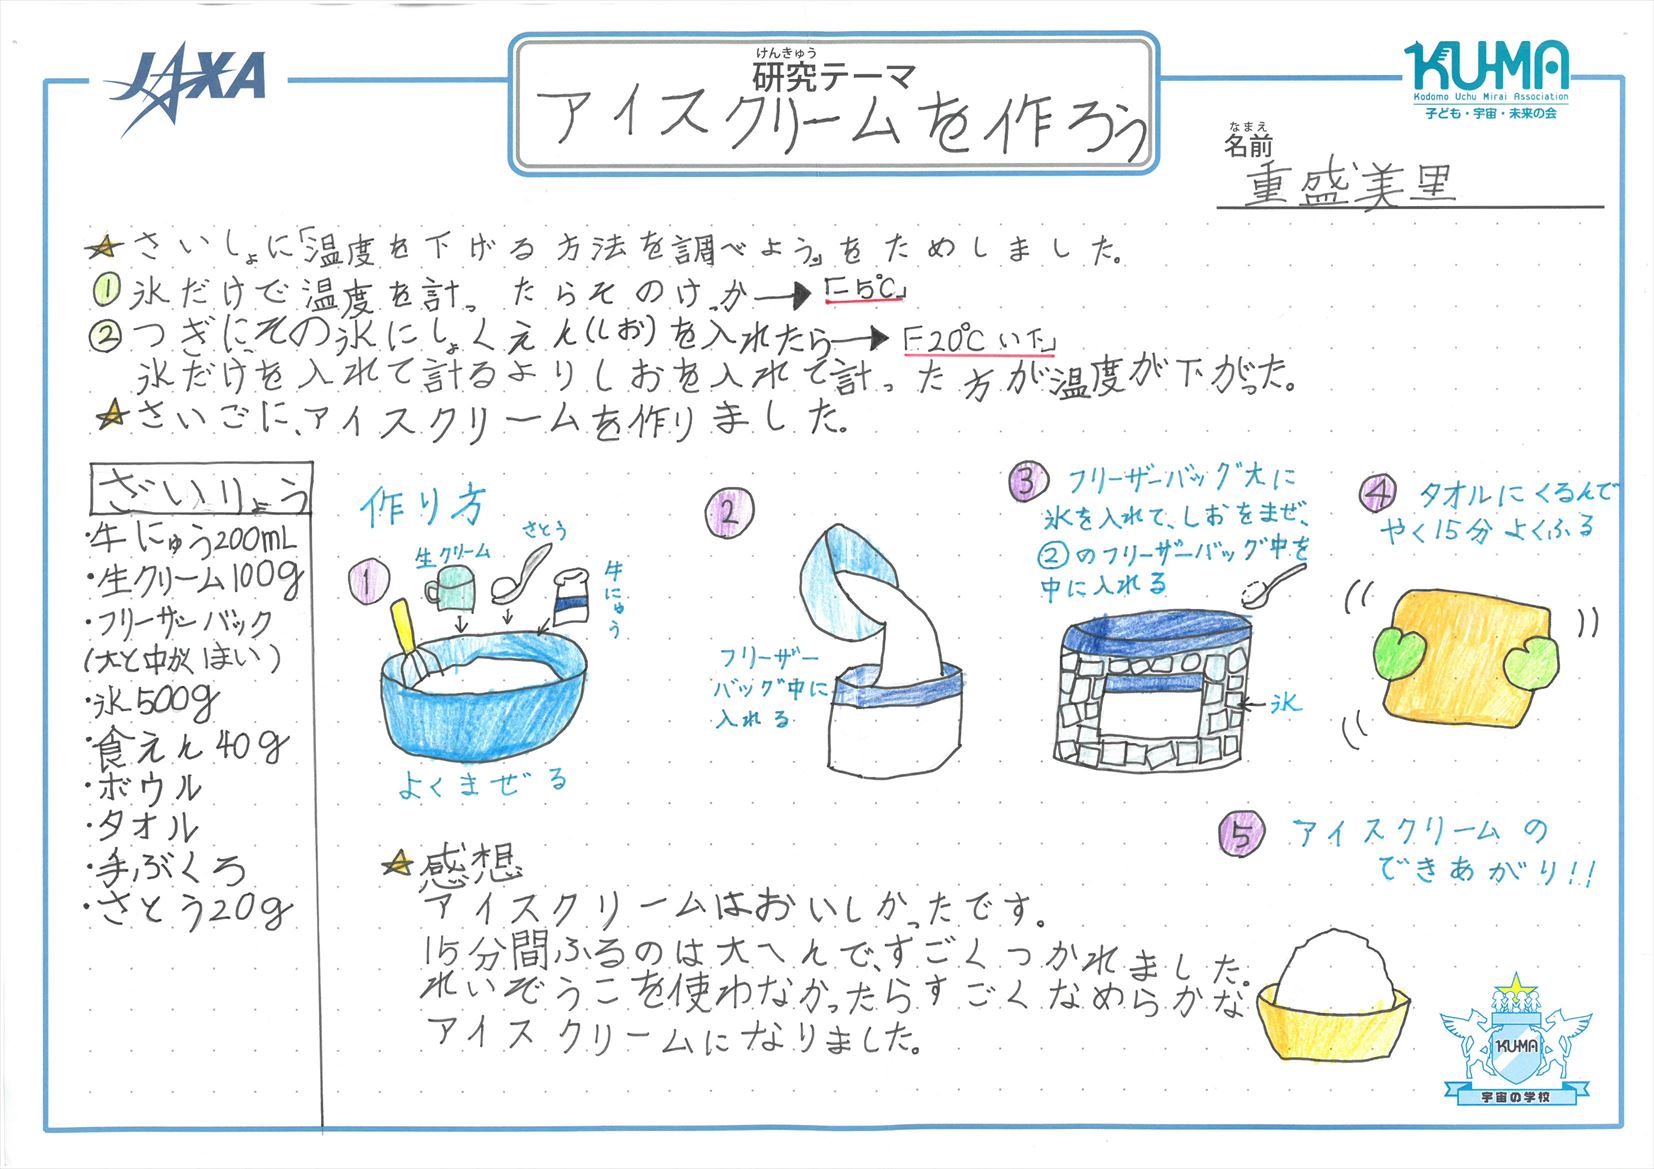 JAXA
けんきゅう
研究テーマ
アイスクリームを作ろう
KU-MA
Kodomo Uchu Mirai Association
子ども・宇宙・未来の会
なまえ
名前
重盛美里
さいしょに「温度を下げる方法を調べよう」をためしました。
① 氷だけで温度を計ったらそのけっか→「-5℃」
② つぎにその氷にしょくえん(しお)を入れたら→「-20℃い下」
氷だけを入れて計るよりしおを入れて計った方が温度が下がった。
さいごに、アイスクリームを作りました。
ざいりょう
・牛にゅう200mL
・生クリーム100g
・フリーザーバック
(大と中が1まい)
・氷500g
・食えん40g
・ボウル
・タオル
・手ぶくろ
・さとう20g
作り方
①
生クリーム
さとう
牛にゅう
よくまぜる
②
フリーザー
バッグ中に
入れる
③ フリーザーバッグ大に
氷を入れて、しおをまぜ、
②のフリーザーバッグ中を
中に入れる
氷
④ タオルにくるんで
やく15分よくふる
⑤ アイスクリームの
できあがり!!
感想
アイスクリームはおいしかったです。
15分間ふるのは大へんで、すごくつかれました。
れいぞうこを使わなかったらすごくなめらかな
アイスクリームになりました。
KU-MA
宇宙の学校